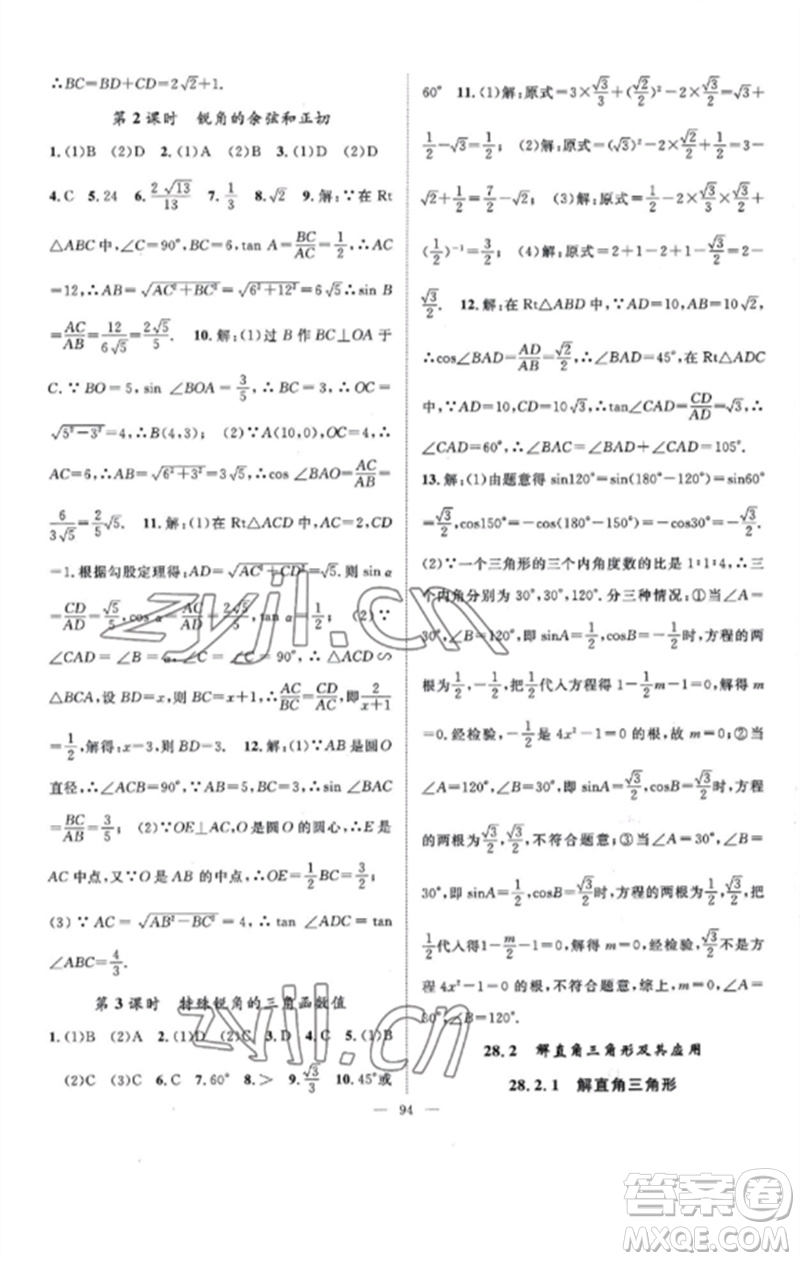 ∴BC=BD+CD=2√2+1.
第2课时 锐角的余弦和正切
1.(1)B (2)D 2.(1)A (2)B 3.(1)D (2)D
4.C 5.24 6.2√13/13 7.1/3 8.√2 9.解:∵在Rt
△ABC中,∠C=90°,BC=6,tan A=BC/AC=1/2,∴AC
=12,∴AB=√(AC²+BC²)=√(6²+12²)=6√5∴sin B
=AC/AB=12/6√5=2√5/5. 10.解:(1)过B作BC⊥OA于
C.∵BO=5,sin ∠BOA=3/5,∴BC=3,∴OC=
√(5²-3²)=4,∴B(4,3); (2)∵A(10,0),OC=4,∴
AC=6,∴AB=√(6²+3²)=3√5,∴cos ∠BAO=AC/AB=
6/3√5=2/5√5. 11.解:(1)在Rt△ACD中,AC=2,CD
=1.根据勾股定理得:AD=√(AC²+CD²)=√5.则sin α
=CD/AD=√5/5,cos α=AC/AD=2√5/5,tan α=1/2; (2)∵
∠CAD=∠B,∠C=∠C=90°,∴△CAD∽
△BCA,设BD=x,则BC=x+1,∴AC/BC=CD/AC,即2/(x+1)
=1/2,解得:x=3,则BD=3. 12.解:(1)∵AB是圆O
直径,∴∠ACB=90°,∵AB=5,BC=3,∴sin ∠BAC
=BC/AB=3/5; (2)∵OE⊥AC,O是圆O的圆心,∴E是
AC中点,又∵O是AB的中点,∴OE=1/2BC=3/2;
(3)∵AC=√(AB²-BC²)=4,∴tan ∠ADC=tan
∠ABC=4/3.
第3课时 特殊锐角的三角函数值
1.(1)B (2)A 2.(1)D (2)C 3.D 4.C 5.(1)B
(2)C (3)A 6.C 7.60° 8.> 9.√3/3 10.45°或
60° 11.(1)解:原式=3×√3/3+(√2/2)²-2×√3/2=√3+
1/2-√3=1/2; (2)解:原式=2×√3/2×√3/2-√2×1+1=3/2
-√2+1/2=7/2-√2; (3)解:原式=1/2-√3/2+√3/2×√3/3+
(1/2)⁻¹=3/2; (4)解:原式=2+1-2+1-√3/2=2-
√3/2. 12.解:在Rt△ABD中,∵AD=10,AB=10√2,
∴cos∠BAD=AD/AB=√2/2,∴∠BAD=45°,在Rt△ADC
中,∵AD=10,CD=10√3,∴tan∠CAD=CD/AD=√3,∴
∠CAD=60°,∴∠BAC=∠BAD+∠CAD=105°.
13.解:(1)由题意得sin120°=sin(180°-120°)=sin60°
=√3/2,cos150°=-cos(180°-150°)=-cos30°=-√3/2.
(2)∵一个三角形的三个内角度数的比是1:1:4,∴三
个内角分别为30°,30°,120°.分三种情况:①当∠A=
30°,∠B=120°时,sinA=1/2,cosB=-1/2时,方程的两
根为1/2,-1/2,把1/2代入方程得1-1/2m-1=0,解得m
=0.经检验,-1/2是4x²-1=0的根,故m=0;②当
∠A=120°,∠B=30°,即sinA=√3/2,cosB=√3/2时,方程
的两根为√3/2,√3/2,不符合题意;③当∠A=30°,∠B=
30°,即sinA=1/2,cosB=√3/2时,方程的两根为1/2,√3/2,把
1/2代入得1-m/2-1=0,解得m=0,经检验,√3/2不是
4x²-1=0的根,不符合题意,综上,m=0,∠A=30°,∠B
=120°.
28.2 解直角三角形及其应用
28.2.1 解直角三角形
— 94 —
zyjl.cn
zyjl.cn
答案卷
MXQE.COM